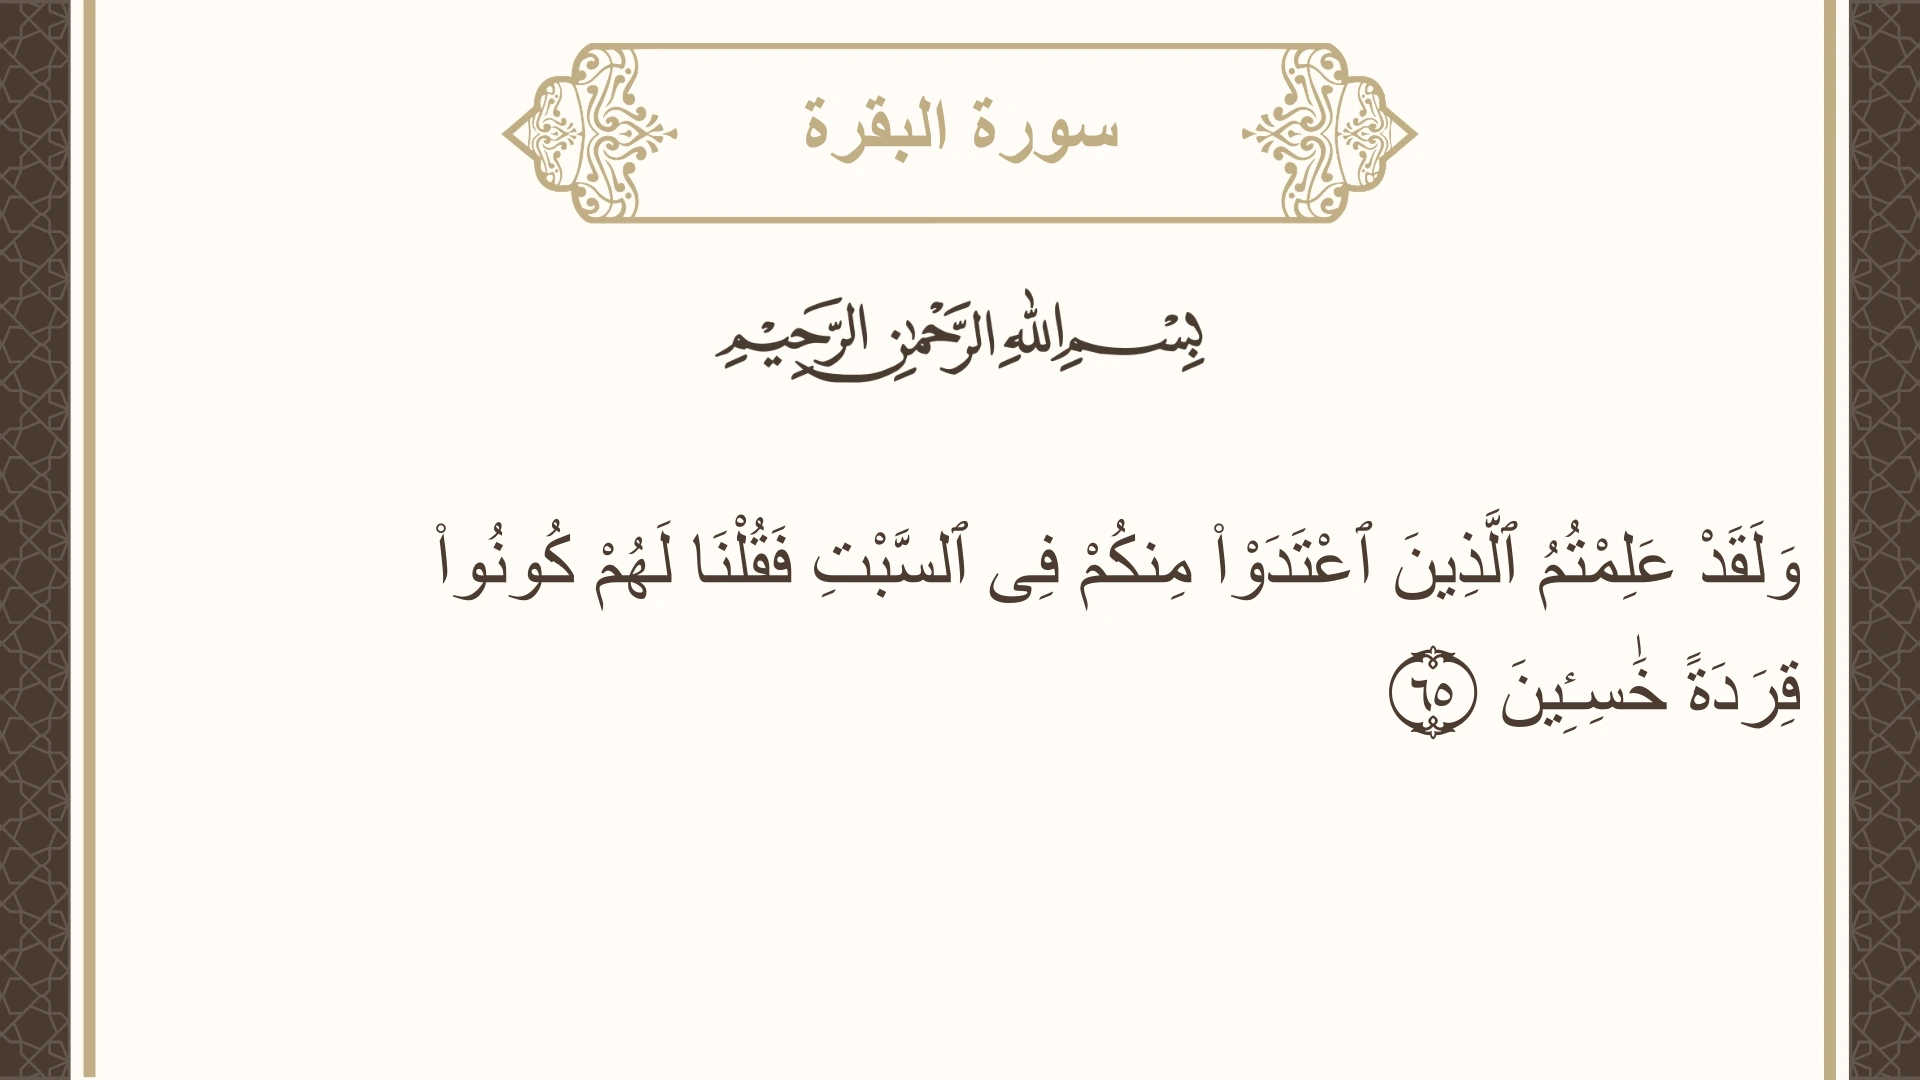 سورة البقرة
بِسْمِ اللهِ الرَّحْمٰنِ الرَّحِيْمِ
وَلَقَدْ عَلِمْتُمُ ٱلَّذِينَ ٱعْتَدَوْا۟ مِنكُمْ فِى ٱلسَّبْتِ فَقُلْنَا لَهُمْ كُونُوا۟
قِرَدَةً خَٰسِـِٔينَ ٦٥